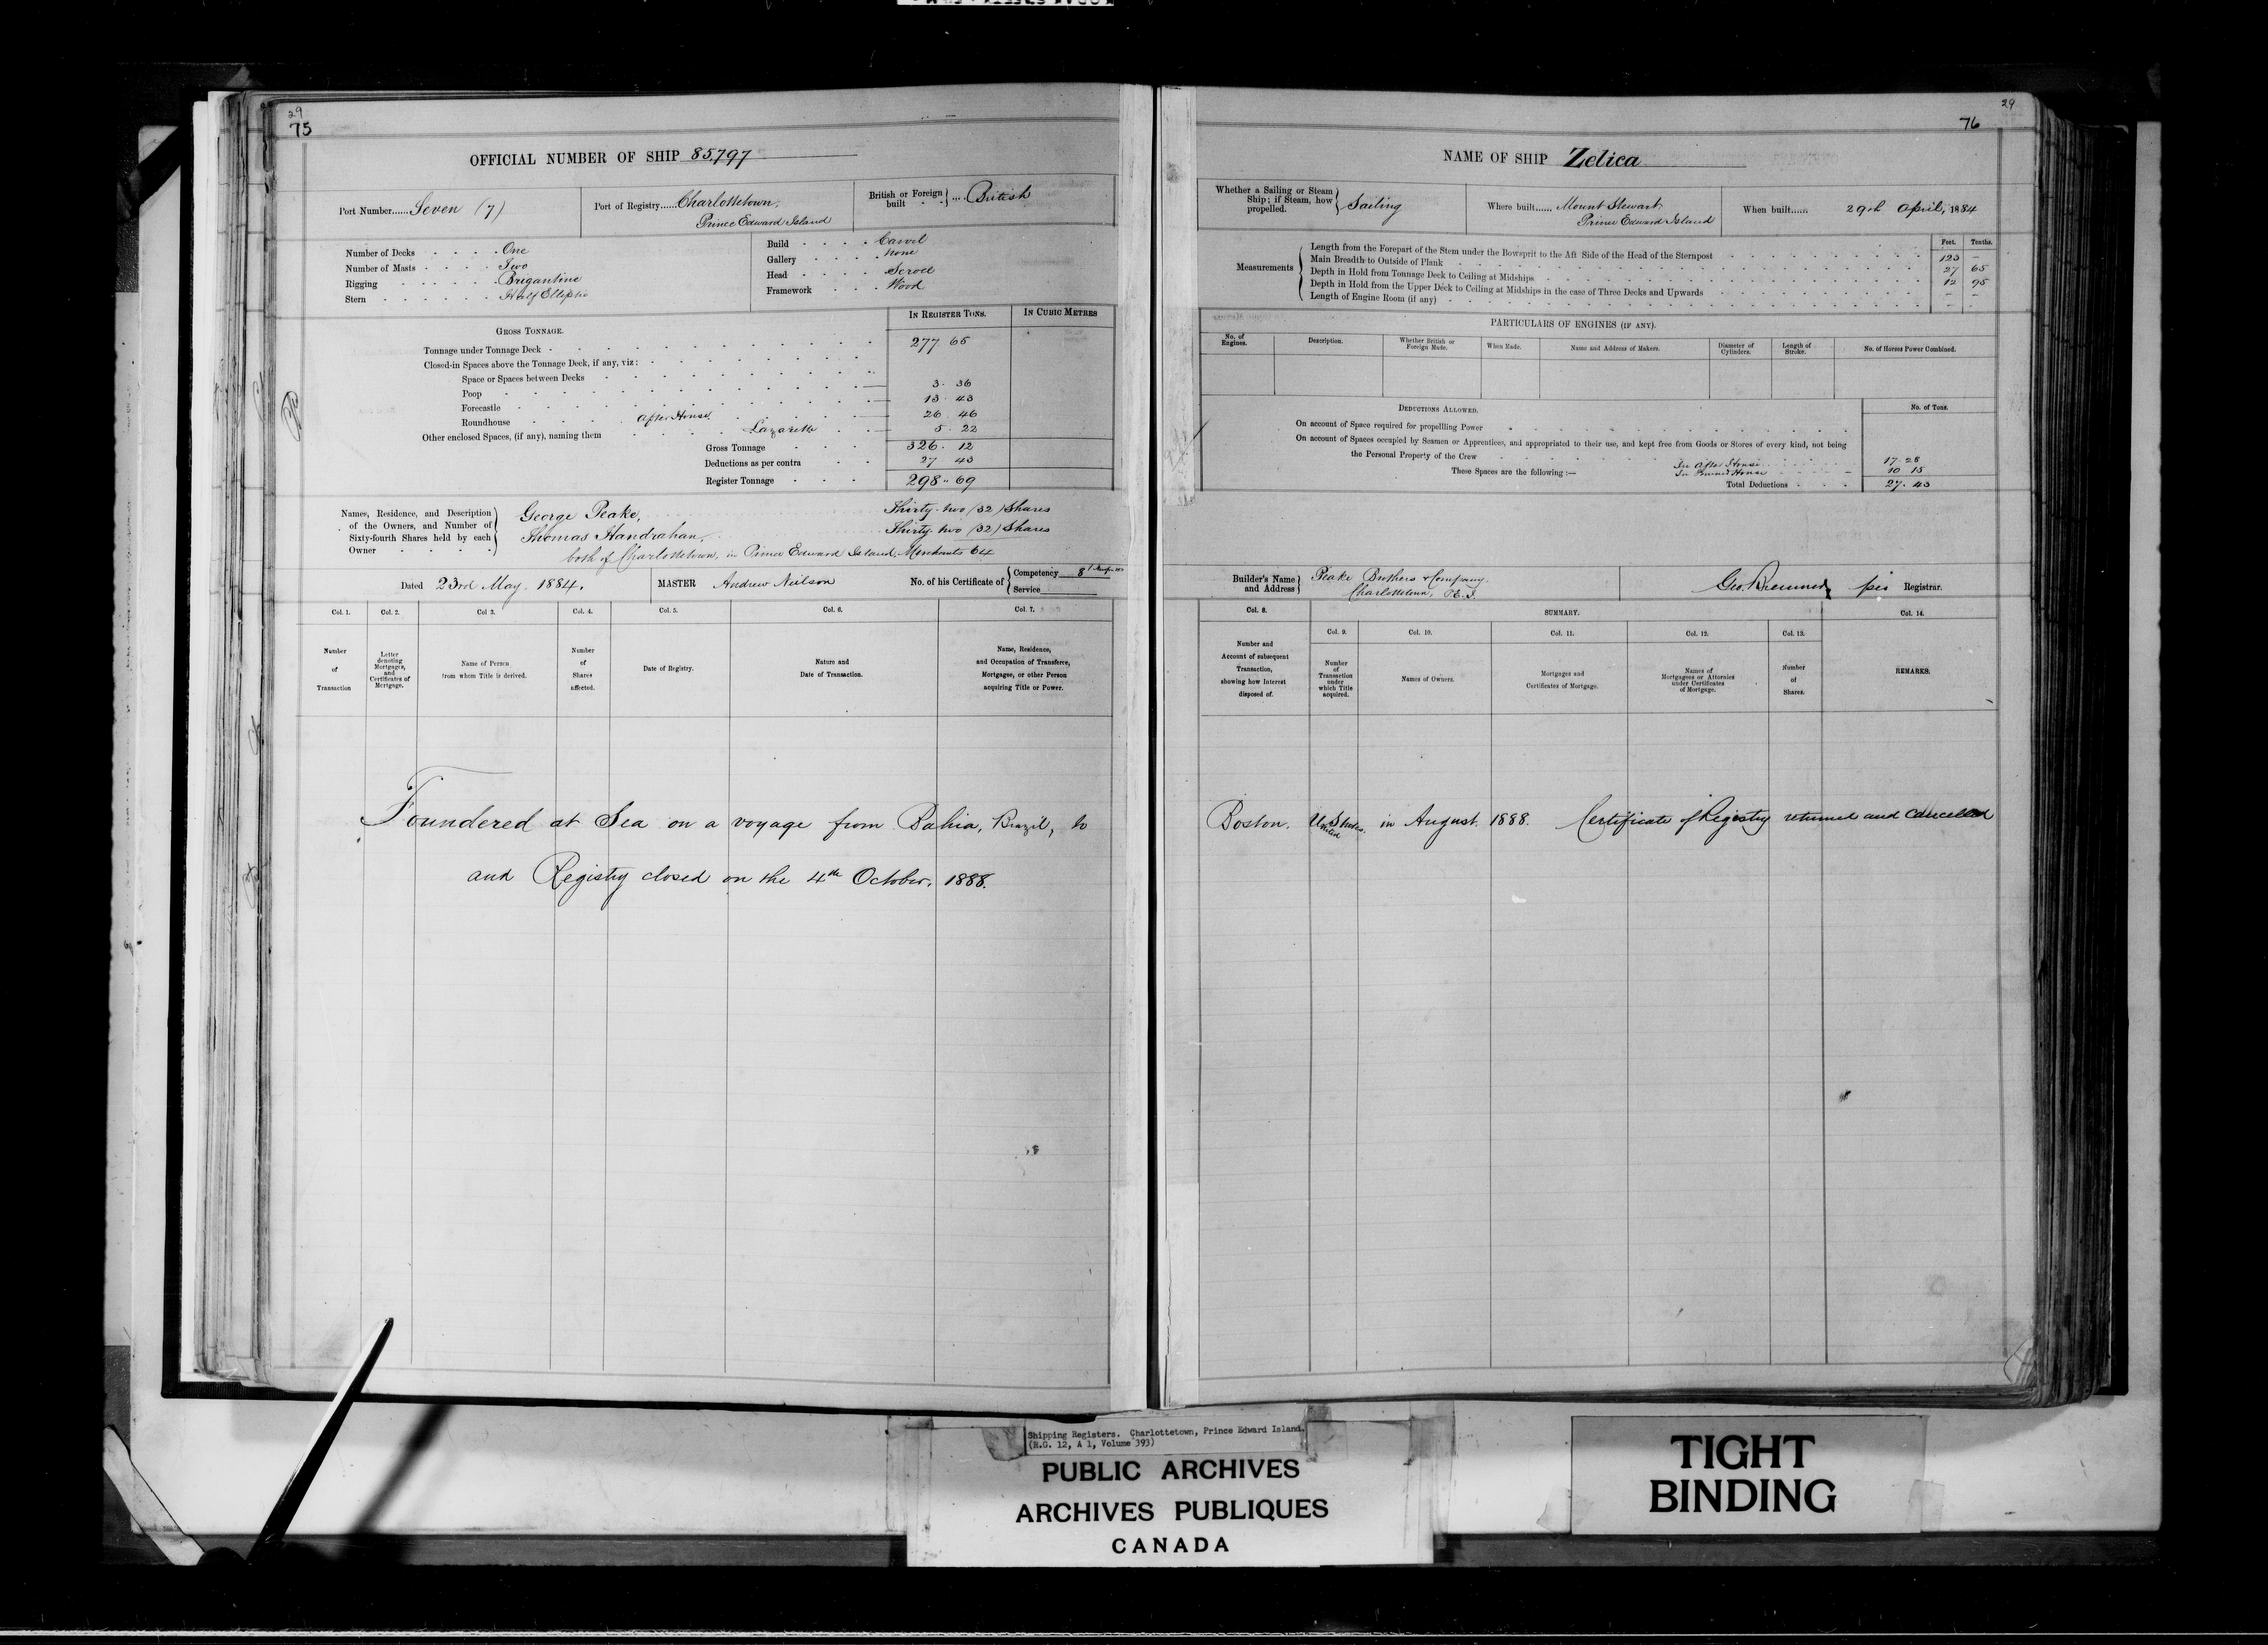 29
75
OFFICIAL NUMBER OF SHIP 85,797
Port Number...... Seven (7)
Port of Registry..... Charlottetown, Prince Edward Island
British or Foreign built .... British
Number of Decks . . . . One
Number of Masts . . . . Two
Rigging . . . . . Brigantine
Stern . . . . . . Half Elliptic
Build . . . . Carvel
Gallery . . . . None
Head . . . . Scroll
Framework . . . Wood
GROSS TONNAGE.
IN REGISTER TONS.
IN CUBIC METRES
Tonnage under Tonnage Deck - 277. 65
Closed-in Spaces above the Tonnage Deck, if any, viz:
Space or Spaces between Decks
Poop 3. 36
Forecastle 13. 43
Roundhouse After House 26 46
Other enclosed Spaces, (if any), naming them Lazarette 5. 22
Gross Tonnage 326. 12
Deductions as per contra 27 43
Register Tonnage 298. 69
Names, Residence, and Description of the Owners, and Number of Sixty-fourth Shares held by each Owner
George Peake, Thirty-two (32) Shares
Thomas Handrahan, Thirty-two (32) Shares
both of Charlottetown, in Prince Edward Island, Merchants 64
Dated 23rd May 1884.
MASTER Andrew Neilson
No. of his Certificate of
Competency 81
Service
Col. 1. Col. 2. Col 3. Col. 4. Col. 5. Col. 6. Col. 7.
Number of Transaction
Letter denoting Mortgages, and Certificates of Mortgage.
Name of Person from whom Title is derived.
Number of Shares affected.
Date of Registry.
Nature and Date of Transaction.
Name, Residence, and Occupation of Transferee, Mortgagee, or other Person acquiring Title or Power.
Foundered at Sea on a voyage from Bahia, Brazil, to
and Registry closed on the 4th October, 1888.
29
76
NAME OF SHIP Zelica
Whether a Sailing or Steam Ship; if Steam, how propelled. Sailing
Where built...... Mount Stewart Prince Edward Island
When built...... 29th April, 1884
Measurements
Feet. Tenths.
Length from the Forepart of the Stem under the Bowsprit to the Aft Side of the Head of the Sternpost 123 -
Main Breadth to Outside of Plank 27 65
Depth in Hold from Tonnage Deck to Ceiling at Midships 12 95
Depth in Hold from the Upper Deck to Ceiling at Midships in the case of Three Decks and Upwards - -
Length of Engine Room (if any) - -
PARTICULARS OF ENGINES (IF ANY).
No. of Engines.
Description.
Whether British or Foreign Made.
When Made.
Name and Address of Makers.
Diameter of Cylinders.
Length of Stroke.
No. of Horses Power Combined.
DEDUCTIONS ALLOWED.
No. of Tons.
On account of Space required for propelling Power
On account of Spaces occupied by Seamen or Apprentices, and appropriated to their use, and kept free from Goods or Stores of every kind, not being
the Personal Property of the Crew
These Spaces are the following :—
In After House 17. 28
In House 10 15
Total Deductions 27. 43
Builder's Name and Address
Peake Brothers & Company
Charlottetown, P.E.I.
Registrar.
Col. 8.
SUMMARY.
Col. 14.
Col. 9. Col. 10. Col. 11. Col. 12. Col. 13.
Number and Account of subsequent Transaction, showing how Interest disposed of.
Number of Transaction under which Title acquired.
Names of Owners.
Mortgages and Certificates of Mortgage.
Names of Mortgagees or Attornies under Certificates of Mortgage.
Number of Shares.
REMARKS.
Boston. United States. in August 1888. Certificate of Registry returned and cancelled
Shipping Registers. Charlottetown, Prince Edward Island.
(R.G. 12, A 1, Volume 393)
PUBLIC ARCHIVES
ARCHIVES PUBLIQUES
CANADA
TIGHT
BINDING